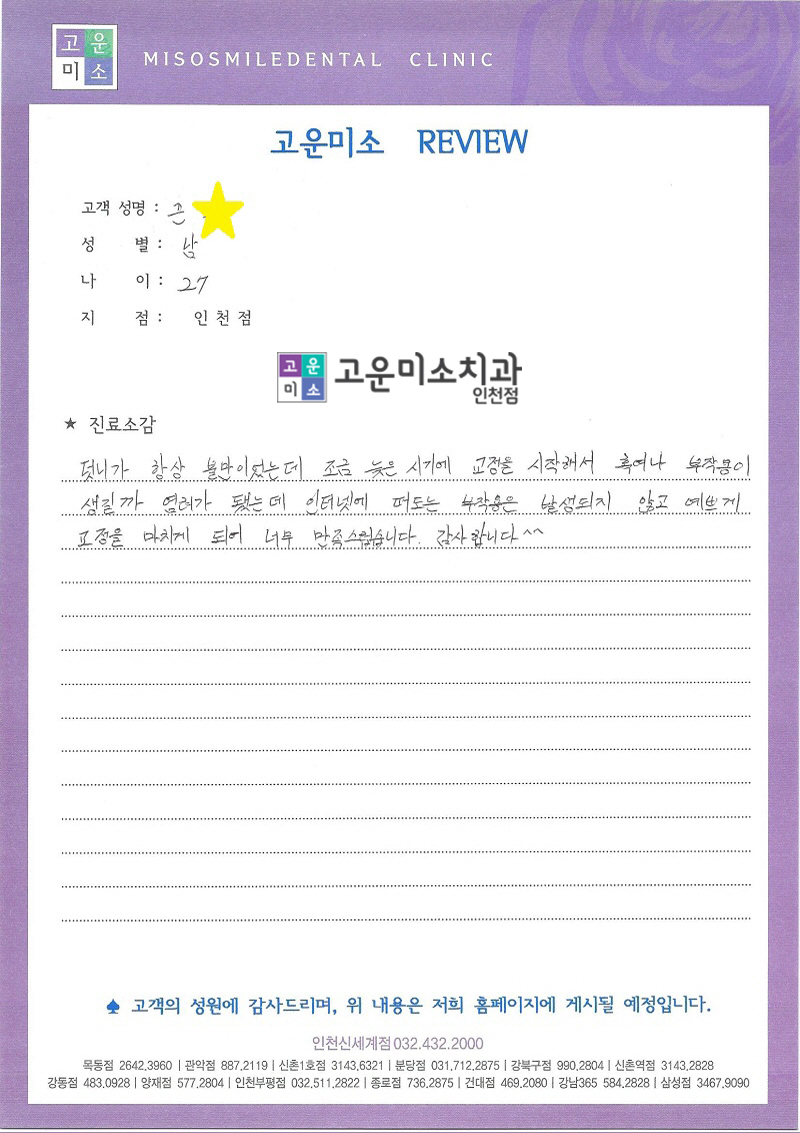 고운
미소
MISOSMILEDENTAL CLINIC
고운미소 REVIEW
고객 성명 :
성 별 : 남
나 이 : 27
지 점 : 인천점
고운
미소
고운미소치과
인천점
★ 진료소감
덧니가 항상 불만이었는데 조금 늦은 시기에 교정을 시작해서 혹여나 부작용이
생길까 염려가 됐는데 인터넷에 떠도는 부작용은 발생되지 않고 예쁘게
교정을 마치게 되어 너무 만족스럽습니다. 감사합니다^^
♠ 고객의 성원에 감사드리며, 위 내용은 저희 홈페이지에 게시될 예정입니다.
인천신세계점 032.432.2000
목동점 2642.3960 | 관악점 887.2119 | 신촌1호점 3143.6321 | 분당점 031.712.2875 | 강북구점 990.2804 | 신촌역점 3143.2828
강동점 483.0928 | 양재점 577.2804 | 인천부평점 032.511.2822 | 종로점 736.2875 | 건대점 469.2080 | 강남365 584.2828 | 삼성점 3467.9090